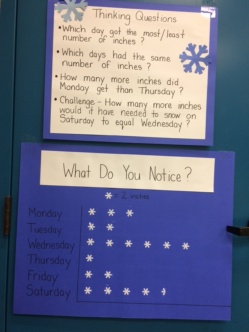 Thinking Questions
• Which day got the most/least
number of inches?
• Which days had the same
number of inches?
• How many more inches did
Monday get than Thursday?
• Challenge - How many more inches
would it have needed to snow on
Saturday to equal Wednesday?
What Do You Notice?
= 2 inches
Monday
Tuesday
Wednesday
Thursday
Friday
Saturday